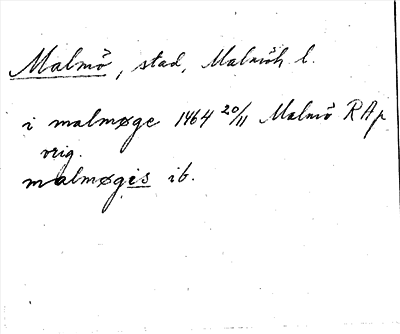 Malmö, stad, Malmöh l.
i malmøge 1464 20/11 Malmö RAp
orig.
malmøgis ib.